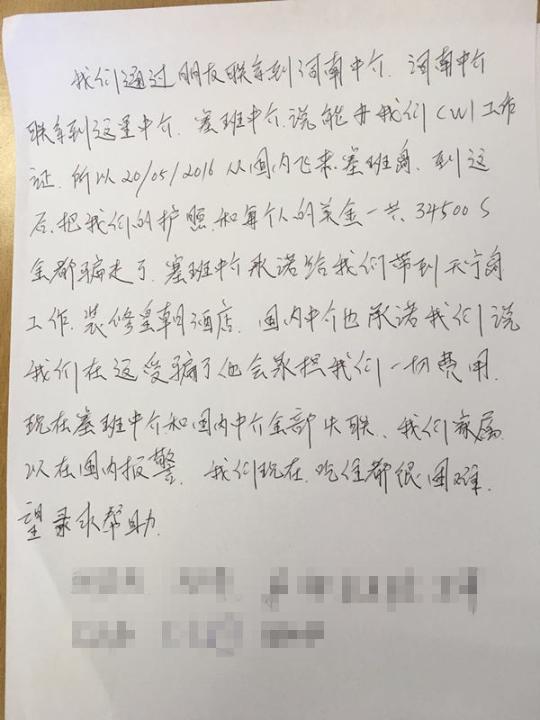 我们通过朋友联系到河南中介. 河南中介
联系到这里中介. 塞班中介说能办我们CW1工作
证. 所以20/05/2016从国内飞来塞班岛. 到这
后.把我们的护照和每个人的美金一共34500$
全都骗走了. 塞班中介承诺给我们带到天宁岛
工作. 装修皇朝酒店. 国内中介也承诺我们说
我们在这受骗了他会承担我们一切费用.
现在塞班中介和国内中介全部失联. 我们家属
以在国内报警. 我们现在.吃住都很困难.
望 求帮助.